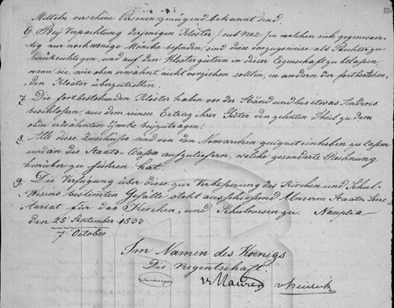 Mitteln versehene Personen genügend bekannt sind.
6 Bey Verpachtung derjenigen Klöster (sub No 2) in welchen sich gegenwär-
tig nur noch wenige Mönche befinden sind diese vorzugsweise als Pächter zu
berücksichtigen, und auf den Klostergütern in dieser Eigenschaft zu belassen
wenn sie, wie oben erwähnt nicht vorziehen sollten, in andern der fortbestehen-
den Klöster überzutreten.
7. Die fortbestehenden Klöster haben vor der Hand und bis etwas Anderes
beschlossen, aus dem reinen Ertrag ihrer Güter den zehnten Theil zu dem
oben erwähnten Zwecke beizutragen.
8. Alle diese Zuschüsse sind von den Nomarchen einheben zu lassen
und an die Staats-Cassa abzuliefern, welche gesonderte Rechnung
hierüber zu führen hat.
9. Die Verfügung über diese zur Verbesserung des Kirchen und Schul-
Wesens bestimmten Gefälle steht ausschliessend Unserem Staats Secre-
tariat für das Kirchen- und Schulwesen zu. Nauplia
den 25 September 1833
7 October
Im Namen des Koenigs
Die Regentschaft.
v Maurer v Heideck